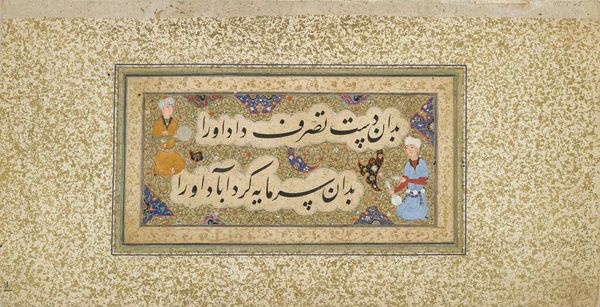 بدان دست تصرف داد او را
بدان سرمایه کرد آباد او را